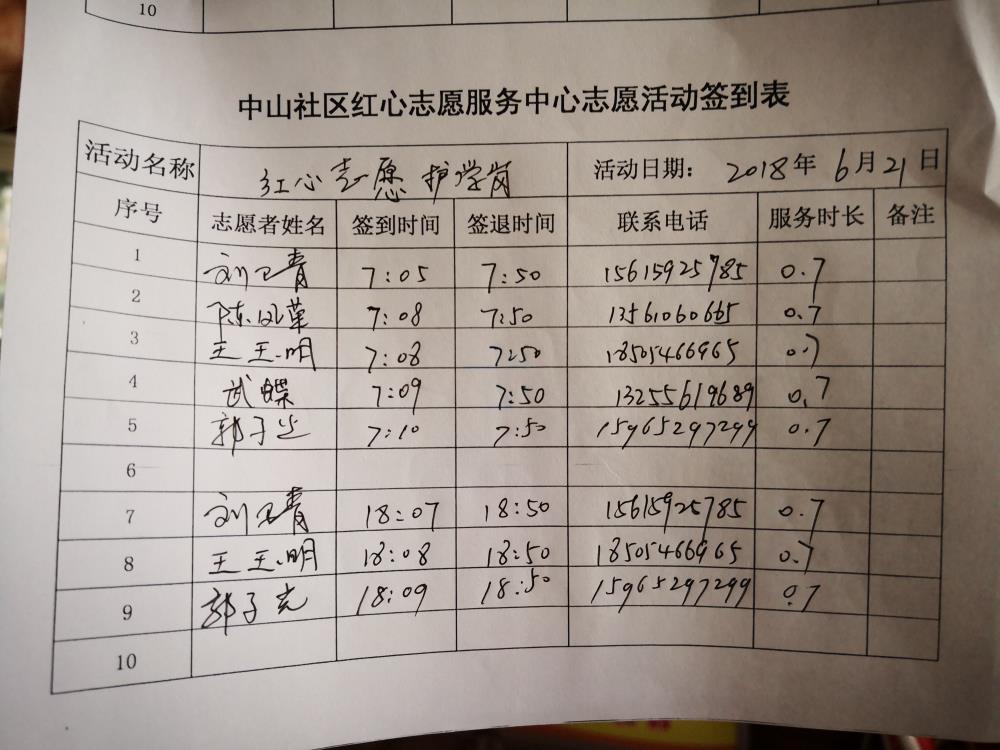 10
中山社区红心志愿服务中心志愿活动签到表
活动名称 红心志愿护学岗 活动日期： 2018年 6月21日
序号 志愿者姓名 签到时间 签退时间 联系电话 服务时长 备注
1 刘卫青 7:05 7:50 15615925785 0.7
2 陈凤革 7:08 7:50 13561060665 0.7
3 王玉明 7:08 7:50 18505466965 0.7
4 武蝶 7:09 7:50 13255619689 0.7
5 郭子光 7:10 7:50 15965297299 0.7
6
7 刘卫青 18:07 18:50 15615925785 0.7
8 王玉明 18:08 18:50 18505466965 0.7
9 郭子光 18:09 18:50 15965297299 0.7
10